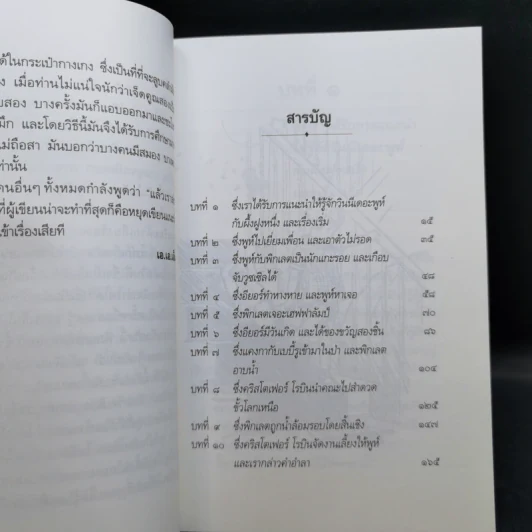 ด้ในกระเป๋ากางเกง ซึ่งเป็นที่ที่จะสูบ
ง เมื่อท่านไม่แน่ใจนักว่าเจ็ดคูณสอง
บสอง บางครั้งมันก็แอบออกมา
มึก และโดยวิธีนี้มันจึงได้รับการศึกษา
ม่ถือสา มันบอกว่าบางคนมีสมอง
ท่านั้น
คนอื่นๆ ทั้งหมดกำลังพูดว่า "แล้วเรา
ที่ผู้เขียนน่าจะทำที่สุดก็คือหยุดเขียน
ข้าเรื่องเสียที
เอ.เอ.
สารบัญ
บทที่ ๑ ซึ่งเราได้รับการแนะนำให้รู้จักวินนีเดอะพูห์
กับผึ้งฝูงหนึ่ง และเรื่องเริ่ม ๑๕
บทที่ ๒ ซึ่งพูห์ไปเยี่ยมเพื่อน และเอาตัวไม่รอด ๓๕
บทที่ ๓ ซึ่งพูห์กับพิกเลตเป็นนักแกะรอย และเกือบ
จับวูซเซิลได้ ๔๘
บทที่ ๔ ซึ่งอียอร์ทำหางหาย และพูห์หาเจอ ๕๘
บทที่ ๕ ซึ่งพิกเลตเจอะเฮฟฟาลัมป์ ๗๐
บทที่ ๖ ซึ่งอียอร์มีวันเกิด และได้ของขวัญสองชิ้น ๘๖
บทที่ ๗ ซึ่งแคงกากับเบบี้รูเข้ามาในป่า และพิกเลต
อาบน้ำ ๑๐๔
บทที่ ๘ ซึ่งคริสโตเฟอร์ โรบินนำคณะไปสำรวจ
ขั้วโลกเหนือ ๑๒๕
บทที่ ๙ ซึ่งพิกเลตถูกน้ำล้อมรอบโดยสิ้นเชิง ๑๔๗
บทที่ ๑๐ ซึ่งคริสโตเฟอร์ โรบินจัดงานเลี้ยงให้พูห์
และเรากล่าวคำอำลา ๑๖๕